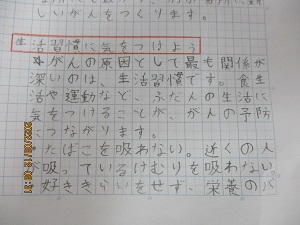 しいがんをつくります。
生活習慣に気をつけよう
がんの原因として最も関係が
深いのは、生活習慣です。食生
活や運動など、ふだんの生活に
気をつけることが、がんの予防
につながります。
たばこを吸わない。近くの人
吸っているけむりを吸わない
好ききらいをせず、栄養のバ